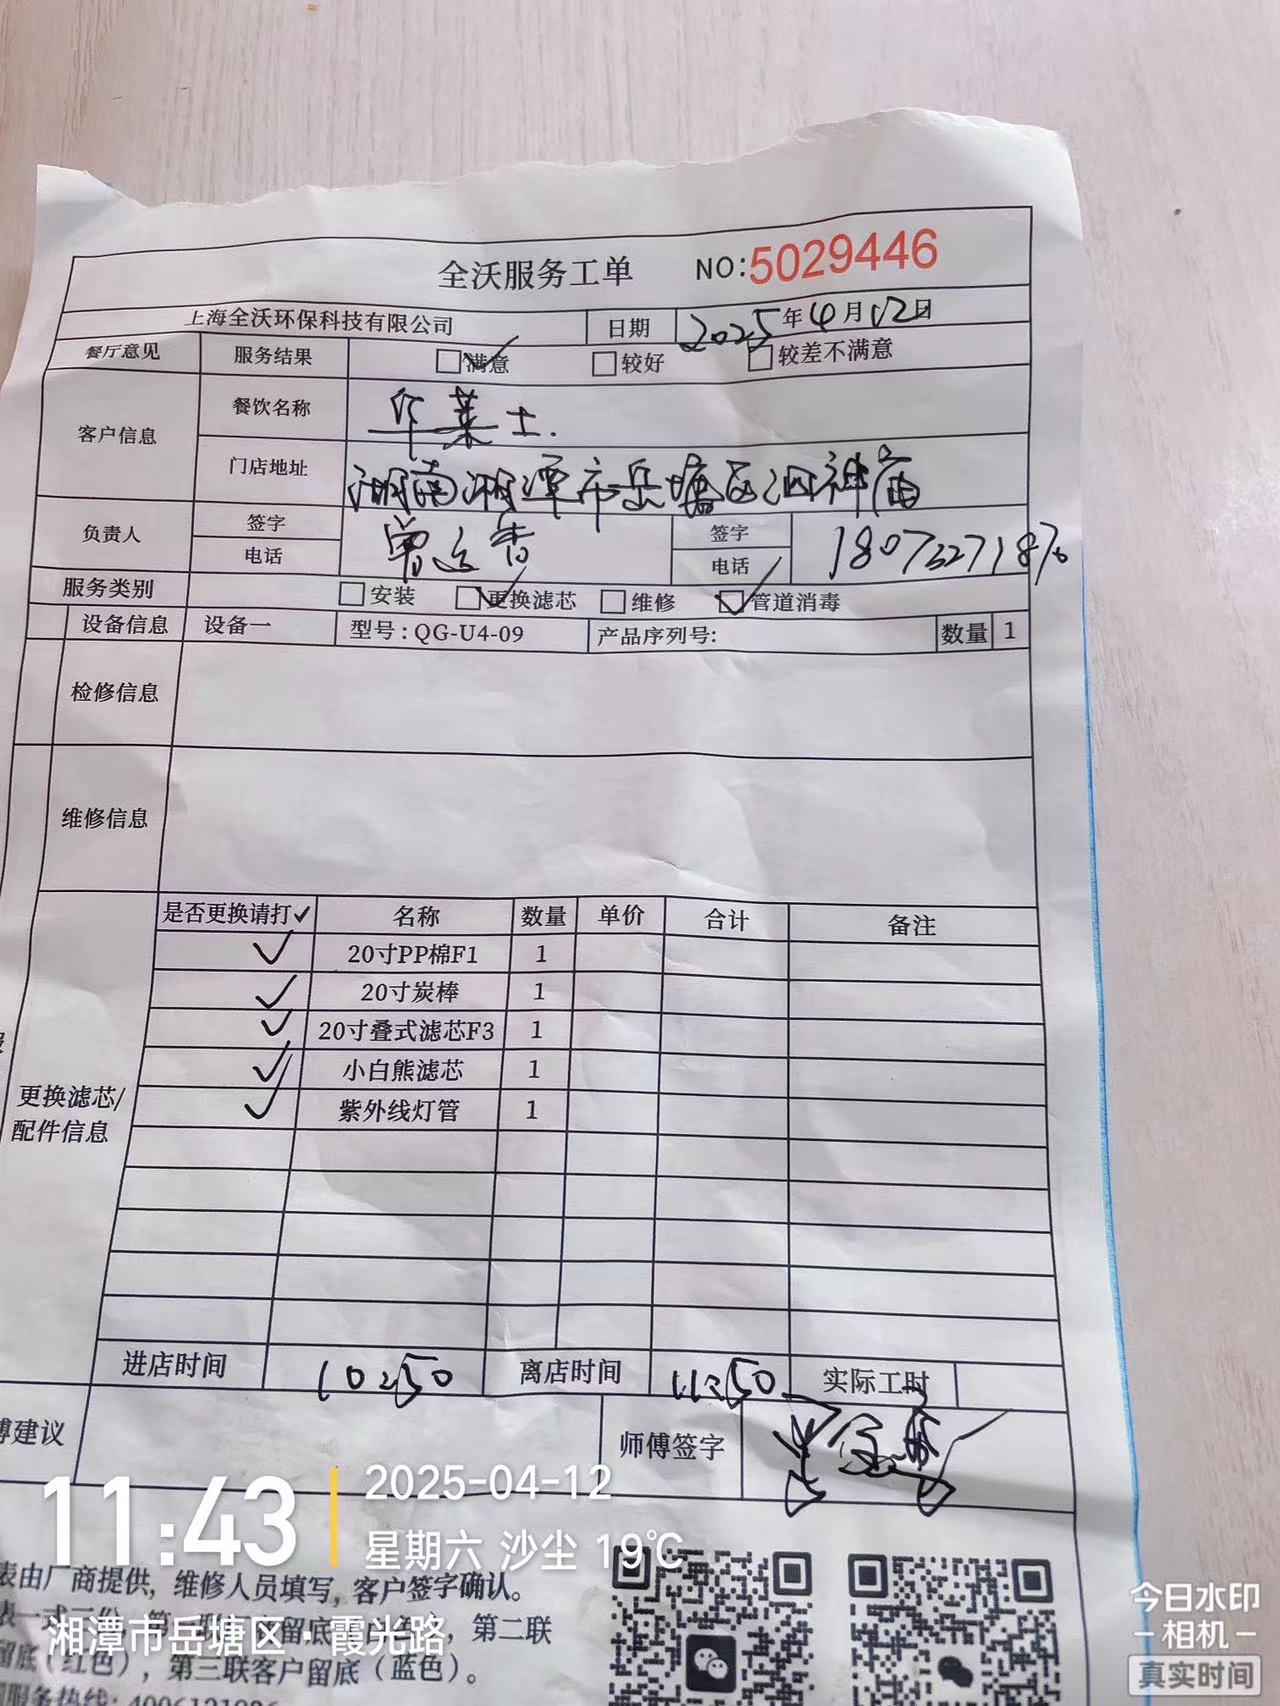 全沃服务工单 NO:5029446
上海全沃环保科技有限公司 日期 2025年4月12日
餐厅意见 服务结果 满意 较好 较差不满意
客户信息 餐饮名称 华莱士.
门店地址 湖南湘潭市岳塘区泗神庙
负责人 签字 签字
电话 曾 香 电话
服务类别 安装 更换滤芯 维修 管道消毒
设备信息 设备一 型号:QG-U4-09 产品序列号: 数量 1
检修信息
维修信息
是否更换请打✓ 名称 数量 单价 合计 备注
✓ 20寸PP棉F1 1
✓ 20寸炭棒 1
✓ 20寸叠式滤芯F3 1
✓ 小白熊滤芯 1
✓ 紫外线灯管 1
更换滤芯/
配件信息
进店时间 10:50 离店时间 11:50 实际工时
傅建议 师傅签字
11:43 2025-04-12
星期六 沙尘 19℃
表由厂商提供,维修人员填写,客户签字确认。
湘潭市岳塘区·霞光路
第二联
留底(红色),第三联客户留底(蓝色)。
服务热线:
今日水印
相机
真实时间